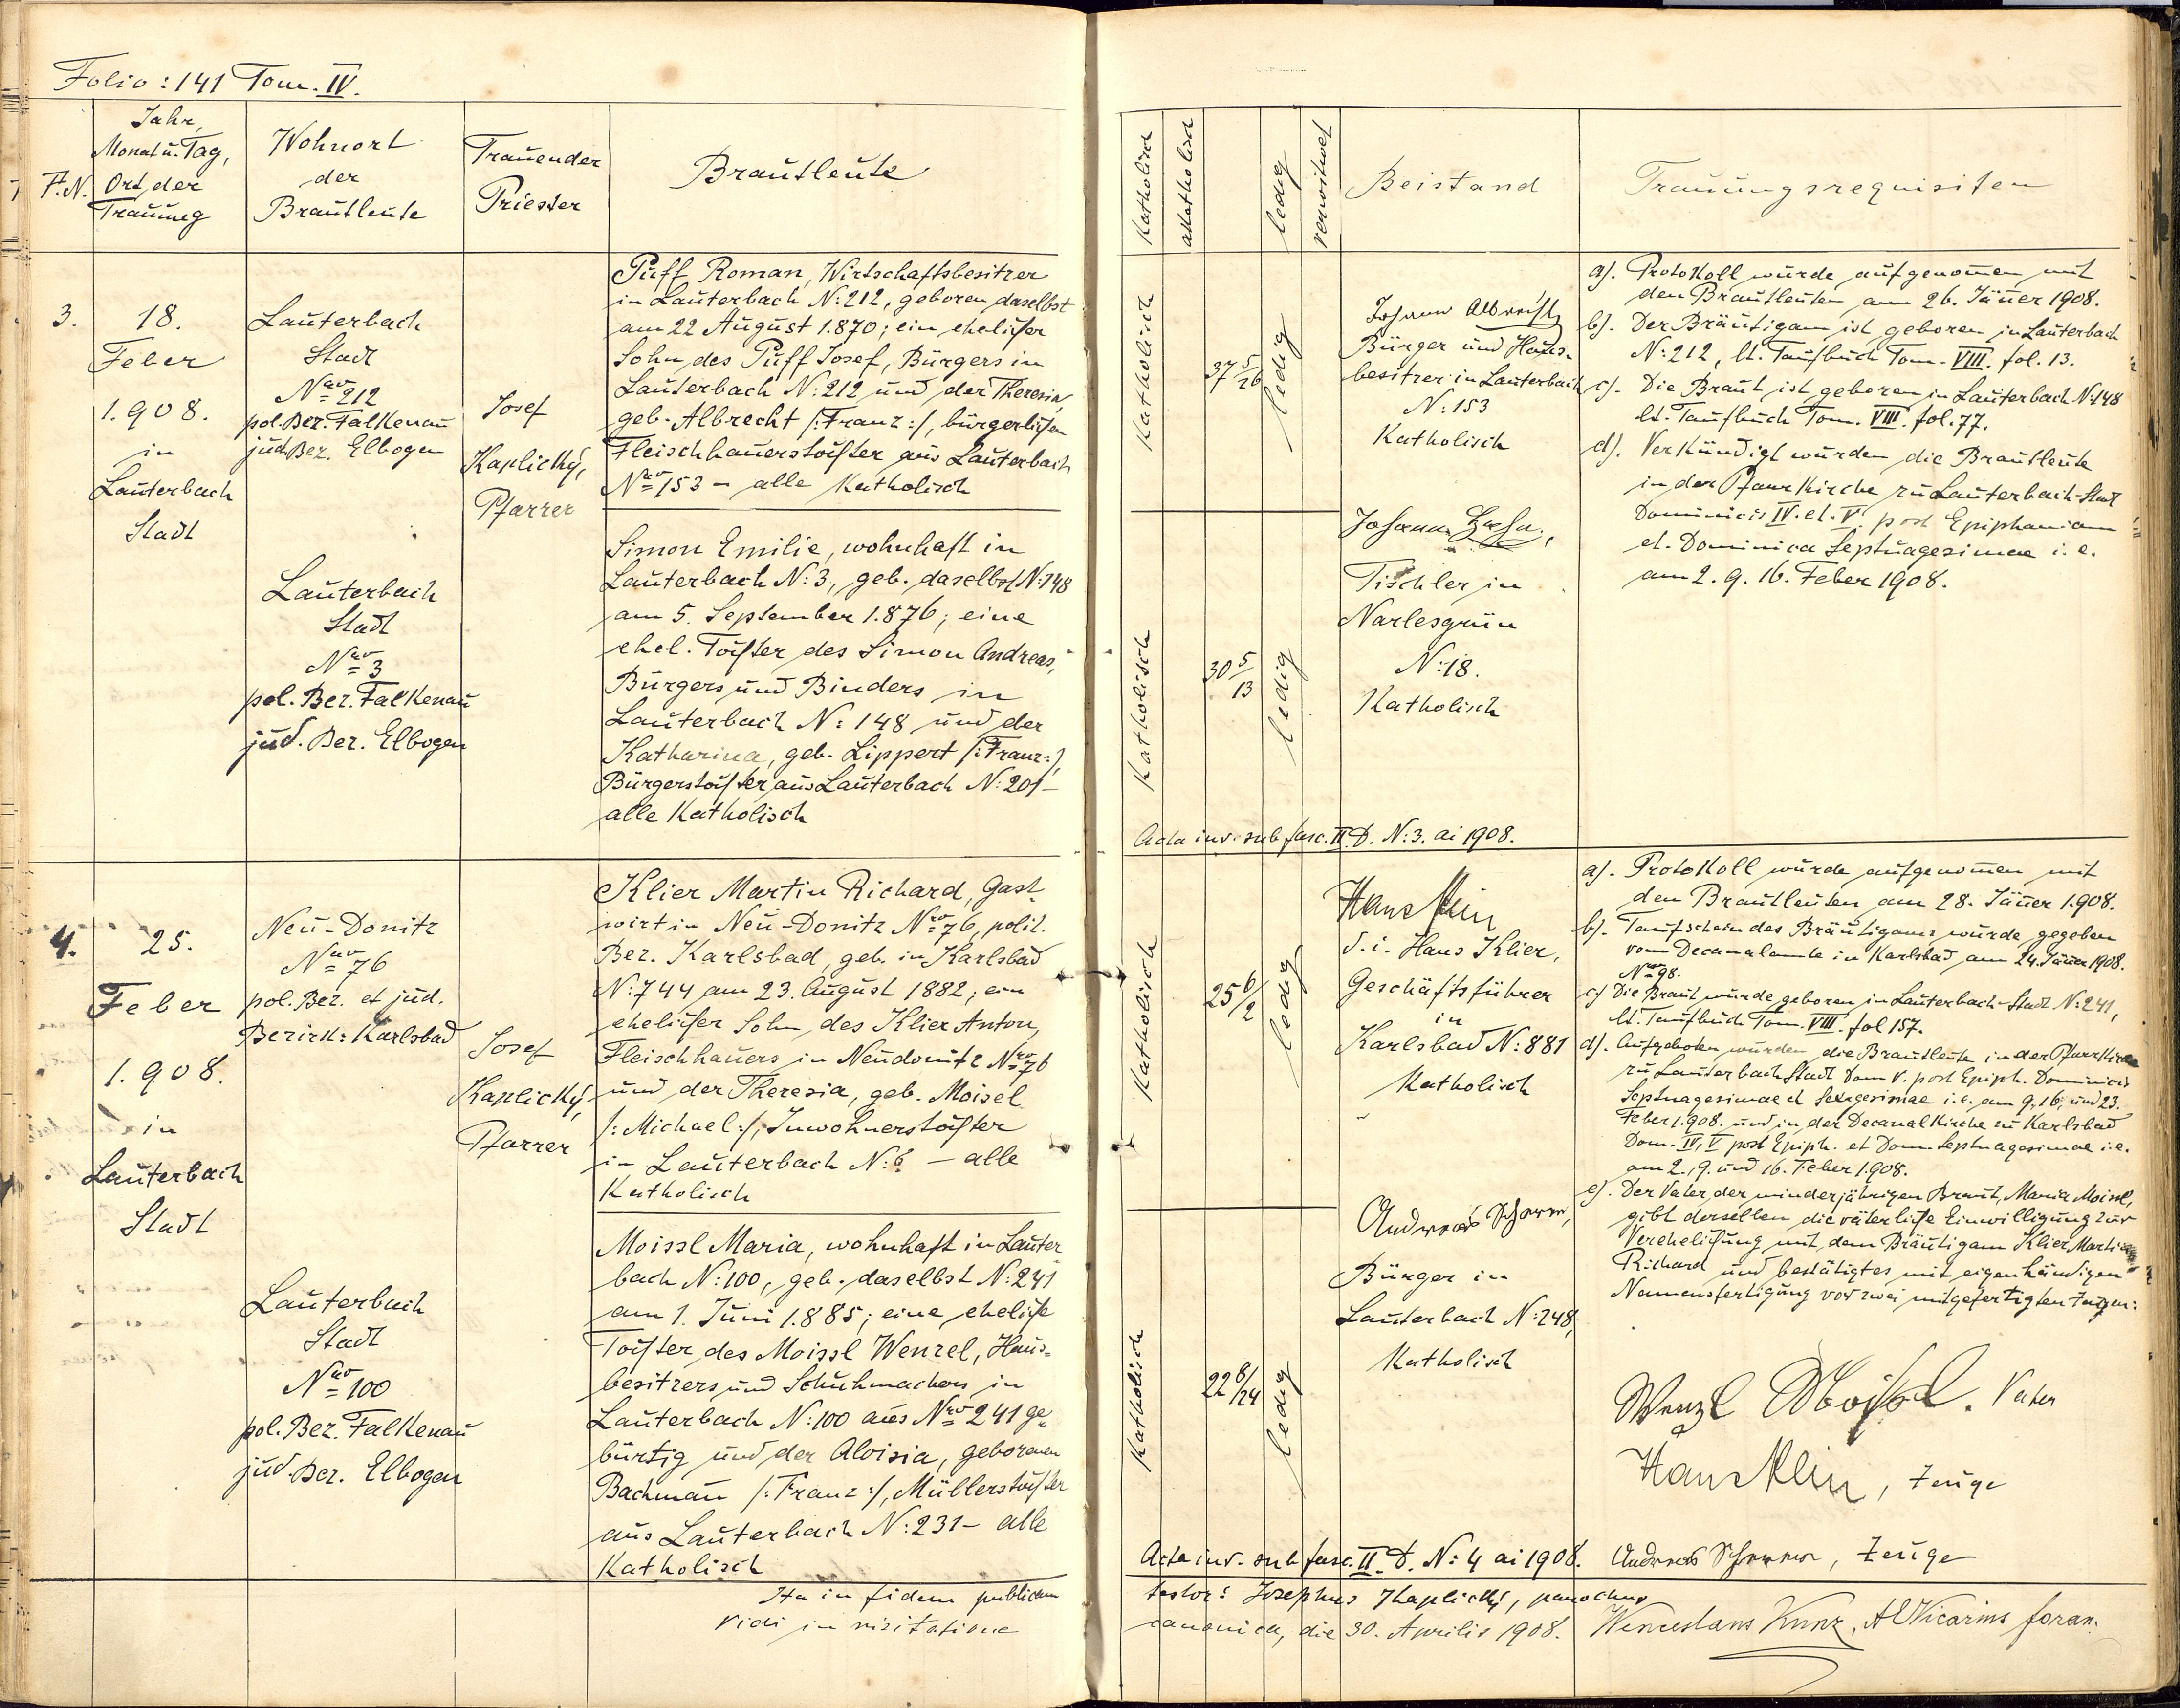 Folio: 141 Tom. IV.
F.N.
Jahr,
Monat u. Tag,
Ort der
Trauung
Wohnort
der
Brautleute
Trauender
Priester
Brautleute
3.
18.
Feber
1.908.
in
Lauterbach
Stadt
Lauterbach
Stadt
Nro 212
pol. Bez. Falkenau
jud. Bez. Elbogen
Lauterbach
Stadt
Nro 3
pol. Bez. Falkenau
jud. Bez. Elbogen
Josef
Kaplický,
Pfarrer
Puff Roman, Wirtschaftsbesitzer
in Lauterbach N: 212, geboren daselbst
am 22 August 1.870; ein ehelicher
Sohn des Puff Josef, Bürgers in
Lauterbach N: 212 und der Theresia,
geb. Albrecht /: Franz :/, bürgerlichen
Fleischhauerstochter aus Lauterbach
Nro 153 - alle Katholisch
Simon Emilie, wohnhaft in
Lauterbach N: 3, geb. daselbst N: 148
am 5. September 1.876; eine
ehel. Tochter des Simon Andreas,
Bürgers und Binders in
Lauterbach N: 148 und der
Katharina, geb. Lippert /: Franz :/,
Bürgerstochter aus Lauterbach N: 201 -
alle Katholisch
4.
25.
Feber
1.908.
in
Lauterbach
Stadt
Neu-Donitz
Nro 76
pol. Bez. et jud.
Bezirk: Karlsbad
Lauterbach
Stadt
Nro 100
pol. Bez. Falkenau
jud. Bez. Elbogen
Josef
Kaplický,
Pfarrer
Klier Martin Richard, Gast-
wirt in Neu-Donitz Nro 76, polit.
Bez. Karlsbad, geb. in Karlsbad
N: 744 am 23. August 1882; ein
ehelicher Sohn des Klier Anton,
Fleischhauers in Neudonitz Nro 76
und der Theresia, geb. Moisel
/: Michael :/, Inwohnerstochter
in Lauterbach N: 6 - alle
Katholisch
Moissl Maria, wohnhaft in Lauter
bach N: 100, geb. daselbst N: 241
am 1. Juni 1.885; eine eheliche
Tochter des Moissl Wenzel, Haus-
besitzers und Schuhmachers in
Lauterbach N: 100 aus Nro 241 ge-
bürtig und der Aloisia, geborenen
Bachmann /: Franz :/, Müllerstochter
aus Lauterbach N: 231 - alle
Katholisch
Ita in fidem publicam
Vidi in visitatione
Katholisch
akatholisch
ledig
verwitwet
Beistand
Trauungsrequisiten
Katholisch
37 5/26
ledig
Johann Albrecht
Bürger und Haus-
besitzer in Lauterbach
N: 153
Katholisch
Johann
Tischler in
Narlesgrün
N: 18.
Katholisch
Katholisch
30 5/13
ledig
a). Protokoll wurde aufgenommen mit
den Brautleuten am 26. Jänner 1908.
b). Der Bräutigam ist geboren in Lauterbach
N: 212, lt. Taufbuch Tom. VIII. fol. 13.
c). Die Braut ist geboren in Lauterbach N: 148
lt. Taufbuch Tom. VIII. fol. 77.
d). Verkündigt wurden die Brautleute
in der Pfarrkirche zu Lauterbach-Stadt
Dominicis IV. et. V. post Epiphaniam
et. Dominica Septuagesimae i. e.
am 2. 9. 16. Feber 1908.
Acta inv. sub fasc. II. D. N: 3. ai 1908.
Katholisch
25 6/2
ledig
Hans Klier
d. i. Hans Klier,
Geschäftsführer
in
Karlsbad N: 881
Katholisch
Andreas
Bürger in
Lauterbach N: 248,
Katholisch
Katholisch
22 8/24
ledig
a). Protokoll wurde aufgenommen mit
den Brautleuten am 28. Jänner 1.908.
b). Taufschein des Bräutigams wurde gegeben
vom Decanalamte in Karlsbad am 24. Jänner 1908.
Nro 98.
c) Die Braut wurde geboren in Lauterbach-Stadt N: 241,
lt. Taufbuch Tom. VIII. fol 157.
d). Aufgeboten wurden die Brautleute in der Pfarrkirche
zu Lauterbach Stadt Dom V. post Epiph. Dominicis
Septuagesimae et Sexagesimae i. e. am 9, 16, und 23.
Feber 1.908. und in der Decanalkirche zu Karlsbad
Dom. IV, V post Epiph. et Dom. Septuagesimae i. e.
am 2., 9. und 16. Feber 1.908.
e). Der Vater der minderjährigen Braut, Maria Moissl,
gibt derselben die väterliche Einwilligung zur
Verehelichung mit dem Bräutigam Klier Martin
Richard und bestätigt es mit eigenhändigen
Namensfertigung vor zwei mitgefertigten Zeugen:
Wenzl Moissl. Vater
Hans Klier, Zeuge
Acta inv. sub fasc. II. D. N: 4 ai 1908.
Andreas , Zeuge
testor: Josephus Kaplický, parochus
canonica, die 30. Aprilis 1908.
Wenceslaus Kunz, Vicarius foran.